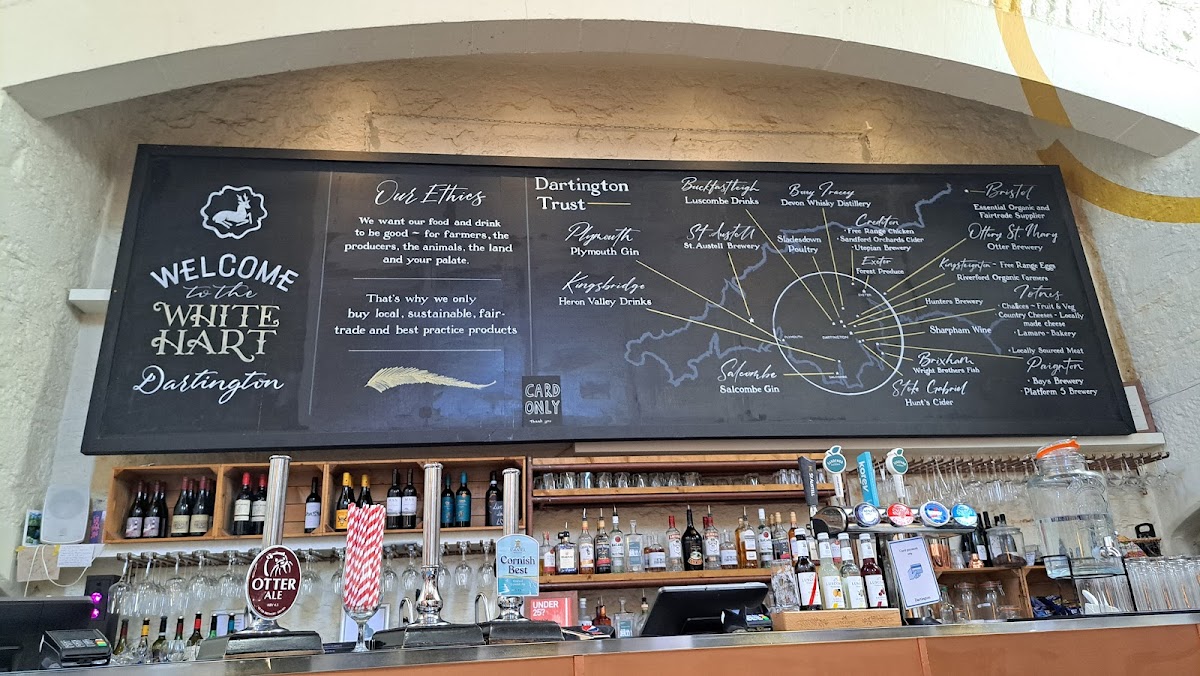 WELCOME
to the
WHITE
HART
Dartington
Our Ethics
We want our food and drink
to be good ~ for farmers, the
producers, the animals, the land
and your palate.
That's why we only
buy local, sustainable, fair-
trade and best practice products
CARD
ONLY
Thank you
Dartington
Trust
Plymouth
Plymouth Gin
Kingsbridge
Heron Valley Drinks
Buckfastleigh
Luscombe Drinks
St Austell
St. Austell Brewery
Salcombe
Salcombe Gin
Bovey Tracey
Devon Whisky Distillery
Sladesdown
Poultry
Crediton
• Free Range Chicken
Sandford Orchards Cider
• Utopian Brewery
Exeter
Forest Produce
EXETER
PLYMOUTH
DARTINGTON
Bristol
Essential Organic and
Fairtrade Supplier
Ottery St. Mary
Otter Brewery
Kingsteignton ~ Free Range Eggs
Riverford Organic Farmers
Hunters Brewery
Totnes
• Challices ~ Fruit & Veg
Country Cheeses ~ Locally
made cheese
• Lamaro ~ Bakery
Sharpham Wine
• Locally Sourced Meat
Brixham
Wright Brothers Fish
Paignton
• Bays Brewery
• Platform 5 Brewery
Stoke Gabriel
Hunt's Cider
OTTER
ALE
Cornish
Best
UNDER
25?
korev